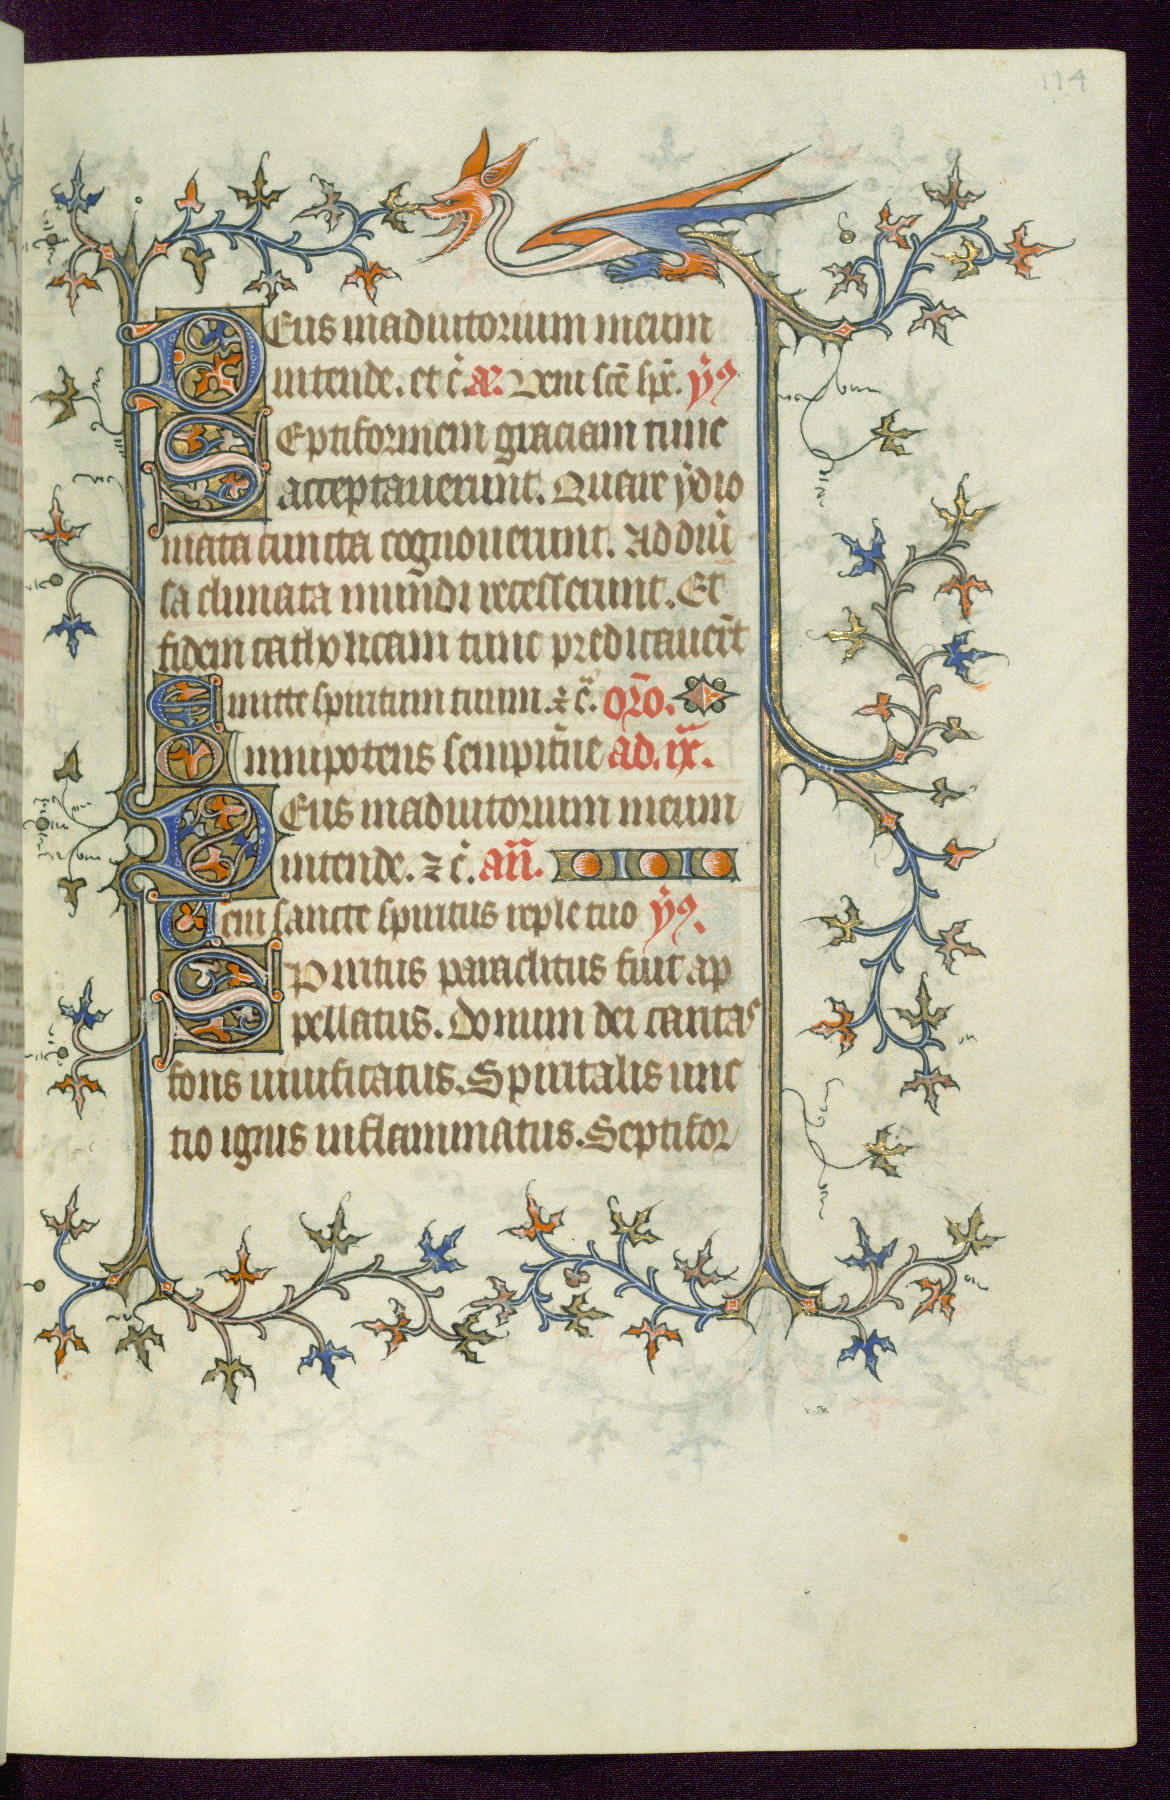 114
Deus in adiutorium meum
intende. et c̄. a̅. Veni sc̄e sp̄c. ẏ9
Septiformem graciam tunc
acceptauerunt. Quare ydio
mata cuncta cognouerunt. Ad diu̅
sa climata mundi recesserunt. Et
fidem catholicam tunc predicauer̅t
Emitte spiritum tuum. ⁊ c̄. or̅o.
Omnipotens sempit̅ne ad. ix.
Deus in adiutorium meum
intende. ⁊ c̄. an̅.
Veni sancte spiritus reple tuo ẏ9.
Spiritus paraclitus fuit ap
pellatus. Donum dei caritas
fons uiuificatus. Spiritalis unc
tio ignis inflammatus. Septifor